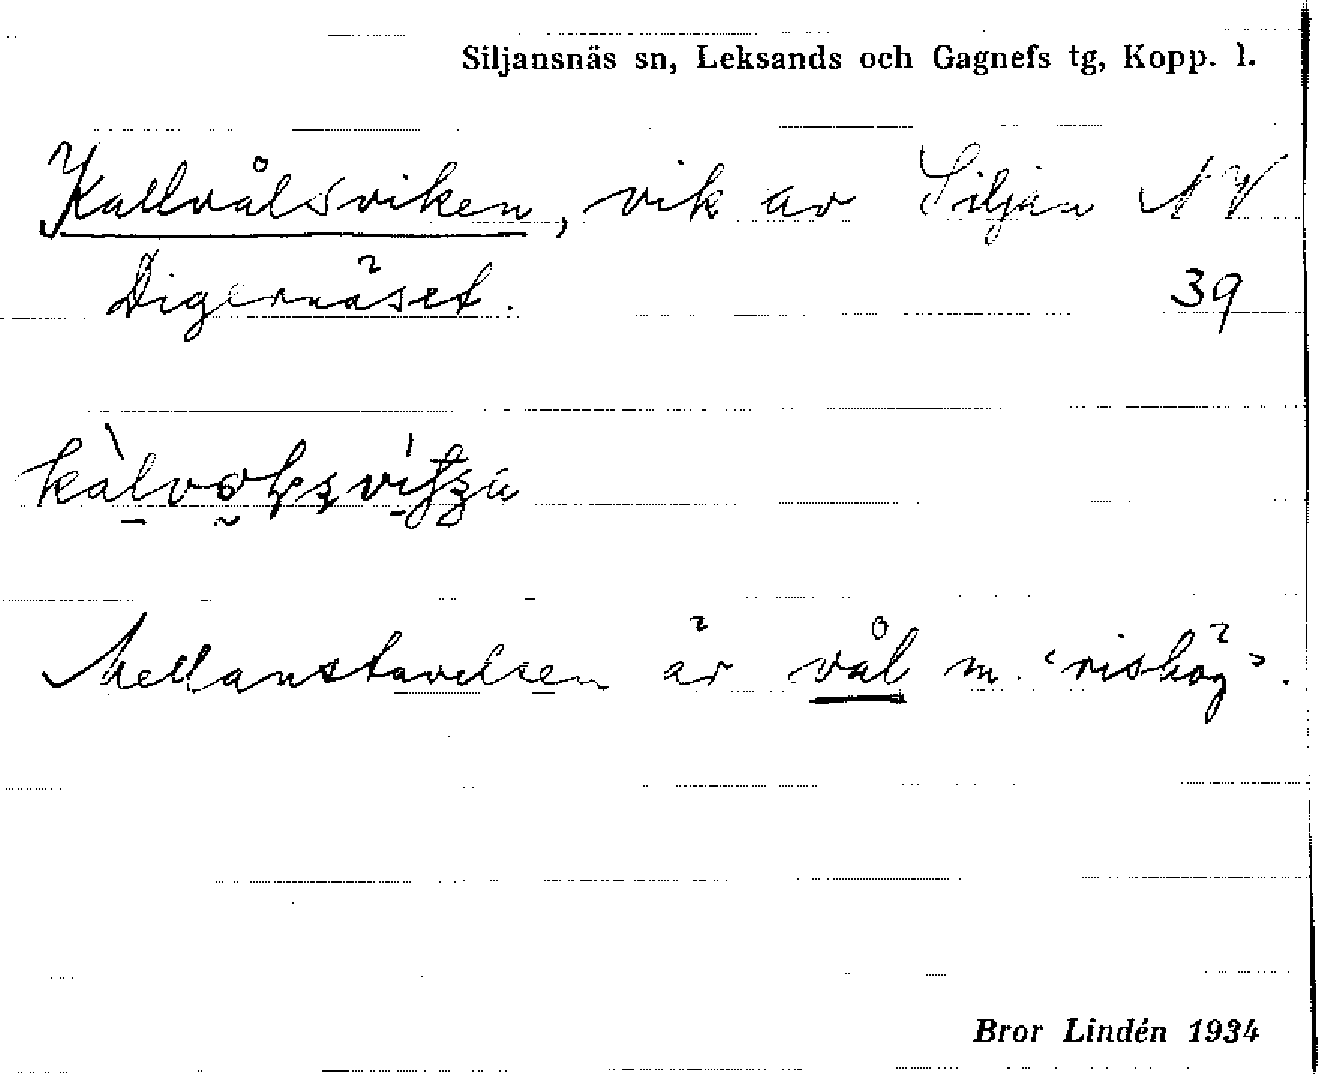 Siljansnäs sn, Leksands och Gagnefs tg, Kopp. l.
Kallvålsviken, vik av Siljan NV
Digernäset. 39
Mellanstavelsen är vål m. ‘rishög’.
Bror Lindén 1934